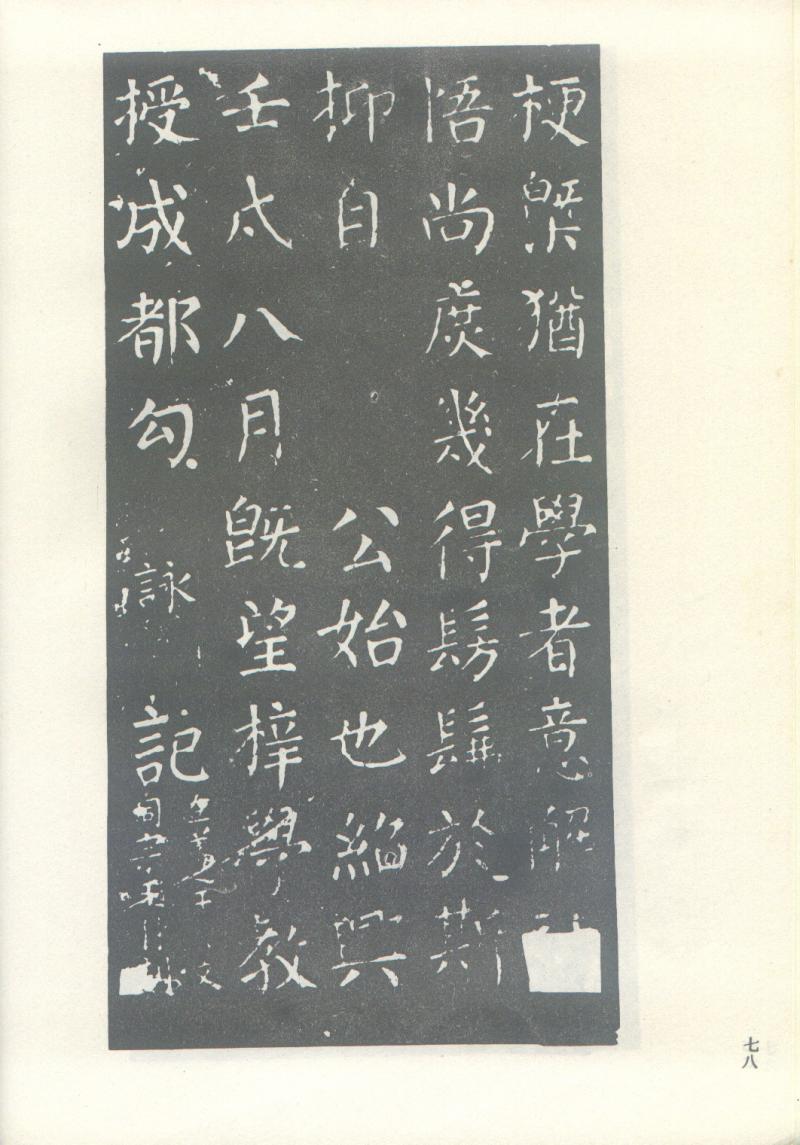 梗槩猶在學者意解
悟尚庻幾得髣髴於斯
抑自公始也紹興
壬戌八月旣望梓學教
授成都勾詠記
七八